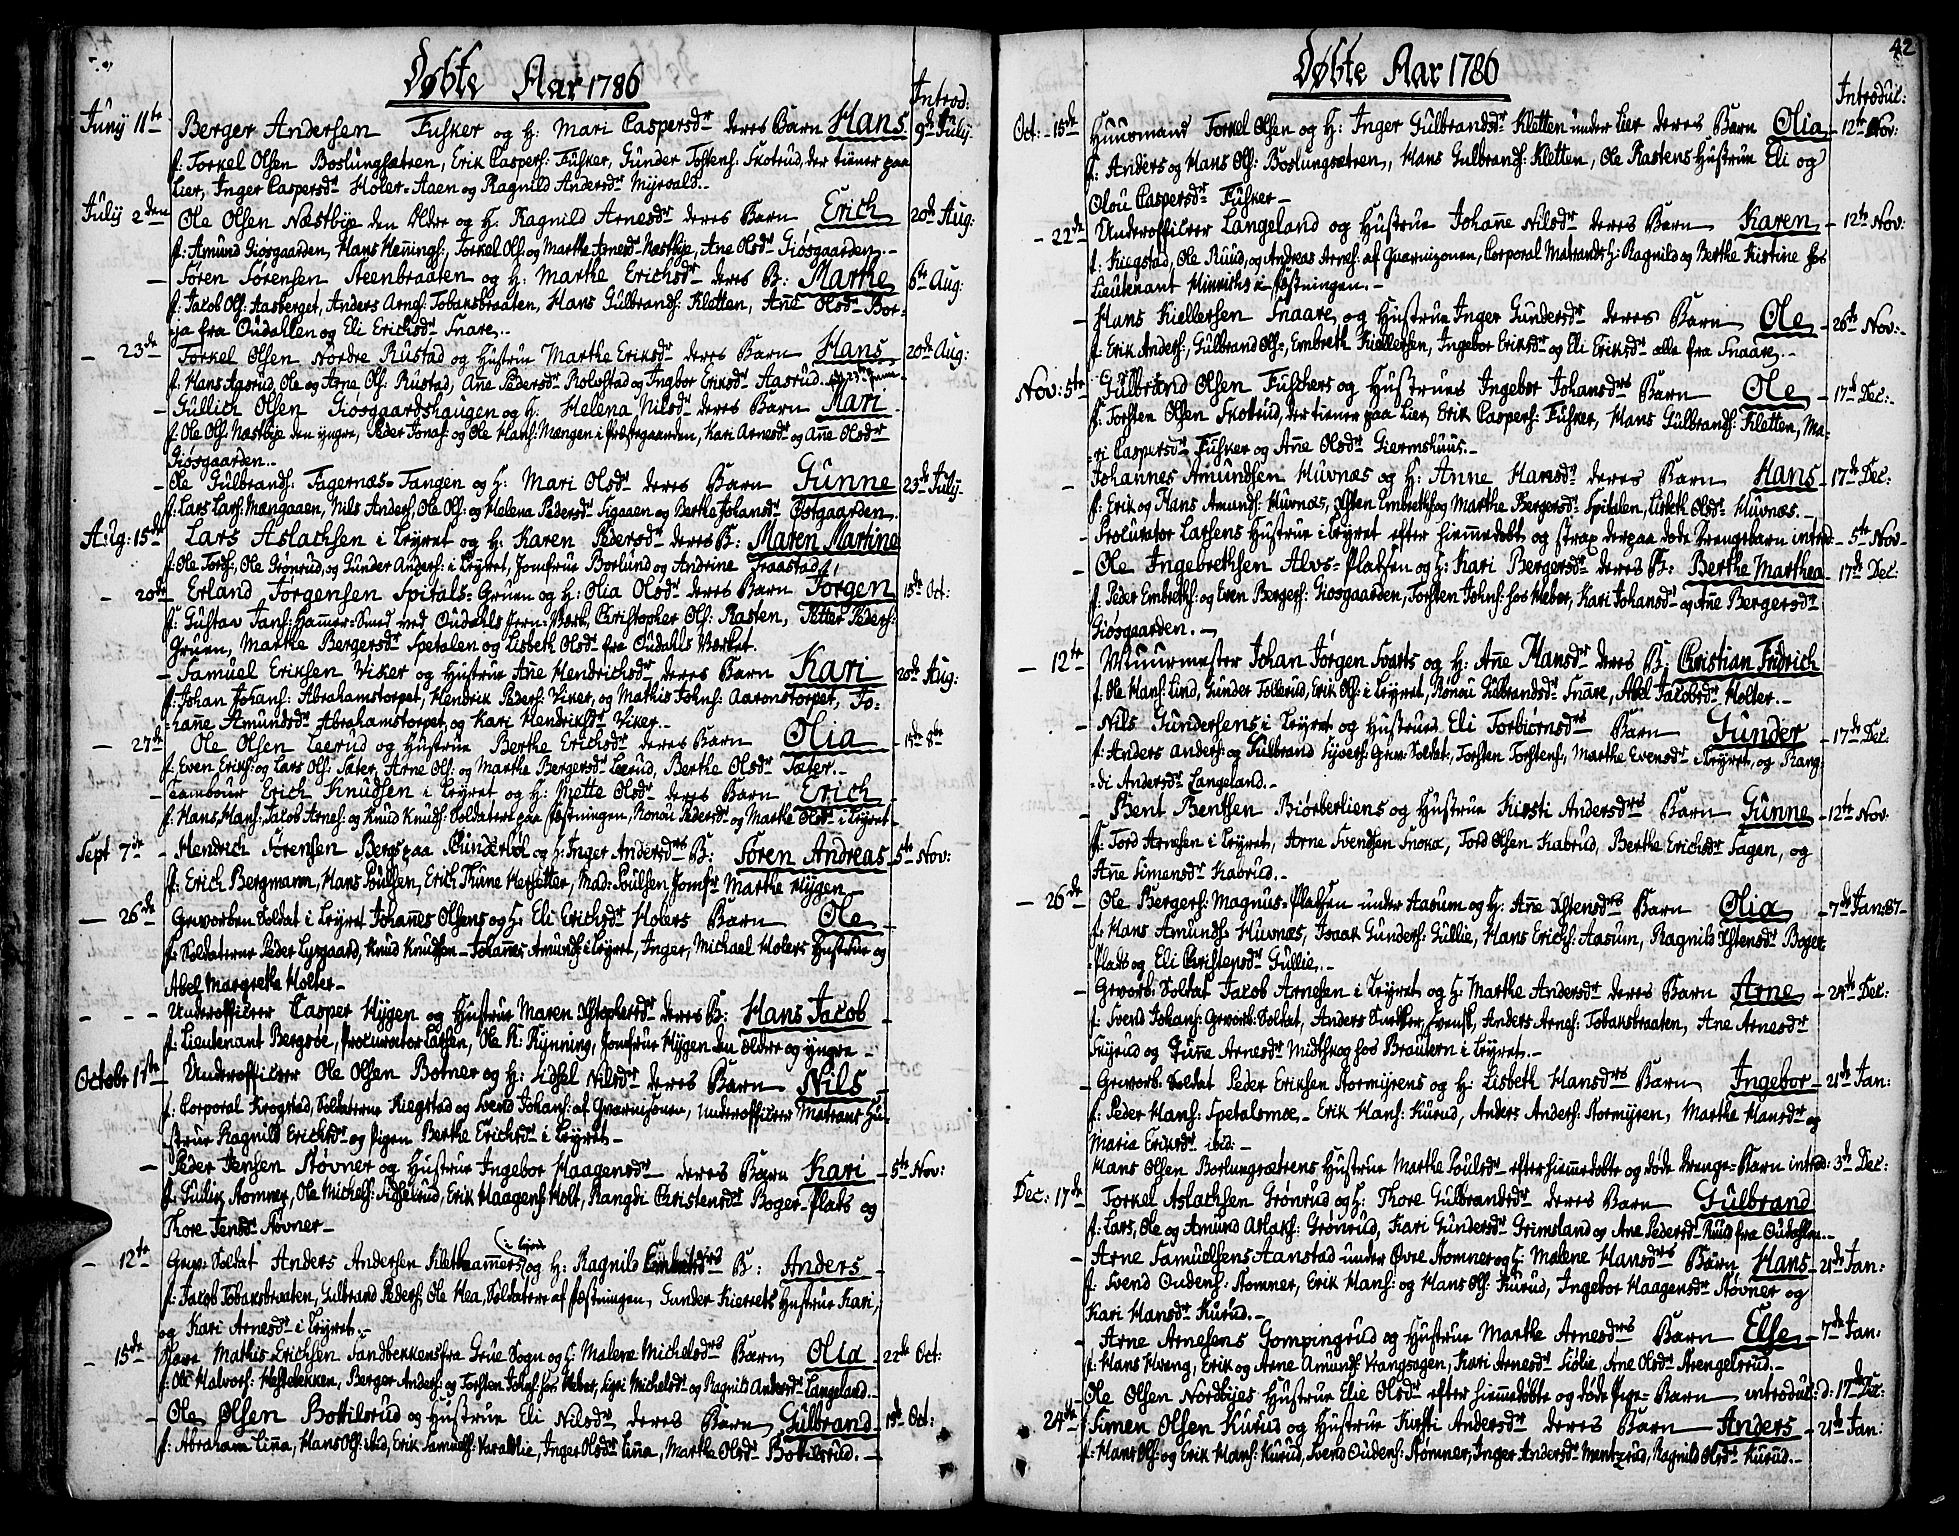 Døbte Aar 1786
Introd:
Juny 11te Berger Andersen Fusker og H: Mari Caspersdr deres Barn Hans 9de July
f: Torkel Olsen Boslungsætren, Erik Caspers: Fusker, Gunder Tostens: Skotrud, der tiener paa
Lier, Inger Caspersdr Holer-Aaen og Ragnild Andersdr Myrvald.
July 2den Ole Olsen Næstbye den Ældre og H: Ragnild Arnesdr deres Barn Erich 20de Aug:
f: Amund Giøsgaarden, Hans Hennings: Torkel Ols: og Marthe Arnesdr Næstbye, Ane Olsdr Giøsgaarden.
- Søren Sørensen Steenbraaten og H: Marthe Erichsdr deres B: Marthe 6te Aug:
f: Jacob Ols: Aasberget, Anders Arnes: Tobaksbraaten, Hans Gulbrands: Kletten, Ane Olsdr Bor-
ja fra Oudahlen og Eli Erichsdr Snare.
- 23de Torkel Olsen Nordre Rustad og Hustrue Marthe Eriksdr deres Barn Hans 20de Aug:
f: Hans Aasrud, Ole og Arne Ols: Rustad, Ane Pedersdr Rolvstad og Ingbor Eriksdr Aasrud.
- Gullich Olsen Giøsgaardshaugen og H: Helena Nilsdr deres Barn Mari
f: Ole Ols: Næstbye den yngre, Peder Jonas: og Ole Hans: Mængen i Præstegaarden, Kari Arnesdr og Ane Olsdr
Giøsgaarden.
Ole Gulbrands: Fagernæs-Tangen og H: Mari Olsdr deres Barn Gunne 23de July
f: Lars Lars: Mængaaen, Nils Anders, Ole Ols: og Helena Pedersdr Sigaaen og Berthe Johansdr Østgaarden.
Aug: 15de Lars Aslachsen i Leyret og H: Karen Pedersdr deres B: Maren Martine
f: Ole Tords:, Ole Grønrud, og Gunder Anders: i Leyret, Jomfrue Borlund og Andrine Fraastad,
- 20de Erland Jorgensen Spitals-Gruen og H: Olia Olsdr deres Barn Jørgen 15de Oct:
f: Gustav Jans: Hammer-Smed ved Oudahls Jern-Værk, Christopher Ols: Rasten, Petter Peders:
Gruen, Marthe Bergersdr Spetalen og Lisbeth Olsdr fra Oudahls Værket.
- Samuel Eriksen Viker og Hustrue Ane Hendrichsdr deres Barn Kari 20de Aug:
f: Johan Johans: Abrahamstorpet, Hendrik Peders: Viker, og Mathis Johns: Aaronstorpet, Jo-
hane Amundsdr Abrahamstorpet og Kari Hendriksdr Viker.
- 27de Ole Olsen Leerud og Hustrue Berthe Erichsdr deres Barn Olia 15de 8br
f: Even Eriks: og Lars Ols: Sater, Arne Ols: og Marthe Bergersdr Leerud, Berthe Olsdr Sater.
- Tambour Erich Knudsen i Leyret og H: Mette Olsdr deres Barn Erich
f: Hans Hans: Jacob Arnes: og Knud Knuds: Soldatere paa Fæstningen, Ronou Pedersdr og Marthe Olsdr i Leyret
Sept 7de Hendrich Sørensen Bergs paa og H: Inger Andersdrs B: Søren Andreas 5te Nov:
f: Erich Bergmann, Hans Poulsen, Erich Thune Hersetter, Mad: Poulsen Jomfr Marthe Hygen
- 26de Gevorben Soldat i Leyret Johanes Olsens og H: Eli Erichsdr Holers Barn Ole
f: Soldaterne Peder Lysgaard, Knud Knudsen - Johannes Amunds: i Leyret, Inger, Michael Holers Hustrue og
Abel Margrethe Holter
- - - Underofficeer Casper Hygen og Hustrue Maren Chstophersdr deres B: Hans Jacob
f: Lieutenant Bergsøe, Procurator Lassen, Ole K: Rynning, Jomfrue Hygen den ældre og yngre
Octobr 1te Underofficeer Ole Olsen Bomer og H: Sidsel Nilsdr deres Barn Nils
f: Corporal Krogstad, Soldaterne Kiegstad og Svend Johans: af Gvarnisonen, Underofficeer Matrans Hu-
strue Ragnild Erichsdr og Pigen Berthe Erichsdr i Leyret
- Peder Jensen Støvner og Hustrue Ingebor Haagensdr deres Barn Kari 5te Nov:
f: Gulik Stomner, Ole Michels: Sidselrud, Erik Haagens: Holt, Rangdi Christensdr Boger-Plads og
Thore Jensdr Støvner
- 12te Gev: Soldat Anders Andersen Klethammer i Leyret og H: Ragnild Embretsdrs B: Anders
f: Jacob Tobaksbraaten, Gulbrand Peders:, Ole Hea, Soldatere af Fæstningen, Gunder Kierrets Hustrue Kari,
og Kari Arnesdr i Leyret.
- 15de Mathis Erichsen Sandbekkens fra Grue Sogn og H: Malene Michelsdrs Barn, Olia 22de Oct:
f: Ole Halvors: Hestebekken, Berger Anders: og Torsten Johns: hos Heber, Siri Michelsdr og Ragnild Andersdr Langeland.
- Ole Olsen Bottilsrud og Hustrue Eli Nilsdr deres Barn, Gulbrand 15de Oct:
f: Abraham Lina, Hans Ols: ibid, Erik Samuels: Varaldlie, Inger Olsdr Lina, Marthe Olsdr Bottilsrud.
42
Døbte Aar 1786
Introduc:
Oct: 15de Huusmand Torkel Olsen og H: Inger Gulbrandsdr Kletten under Lier deres Barn Olia 12te Nov:
f: Anders og Hans Ols: Boslungsætren, Hans Gulbrands: Kletten, Ole Rastens Hustrue Eli og
Olou Caspersdr Fusker
- 22de Underofficeer Langeland og Hustrue Johane Nilsdr deres Barn Karen 12te Nov:
f: Kiegstad, Ole Ruud, og Andreas Arnes: af Guarnizonen, Corporal Matrands H: Ragnild og Berthe Kistine hos
Lieutenant Hinrichs i Fæstningen.
- Hans Kiellersen Snaare og Hustrue Inger Gundersdr deres Barn Ole 26de Nov:
f: Erik Anders:, Gulbrand Ols:, Embreth Kiellersen, Ingebor Eriksdr og Eli Eriksdr alle fra Snaare.
Nov: 5te Gulbrand Olsen Fuschers og Hustrues Ingebor Johansdrs Barn Ole 17de Dec:
f: Torsten Olsen Skottrud, der tiener paa Lier, Erik Caspers: Fusker, Hans Gulbrands: Kletten, Ma-
ri Caspersdr Fusker og Ane Olsdr Giermshuus.
- Johannes Amundsen Huvnæs og H: Anne Hansdr deres Barn Hans 17de Dec:
f: Erik og Hans Amunds: Huvnæs, Chsten Embreths: og Marthe Bergersdr Spitalen, Lisbeth Olsdr Huvnæs.
- Procurator Lassens Hustrue i Leyret efter hiemmedøbt og strax derpaa døde Drengebarn introd 5te Nov
- Ole Ingebrethsen Alvs-Pladsen og H: Kari Bergersdr deres B: Berthe Marthea 17de Dec:
f: Peder Embreths: og Even Bergers: Giøsgaarden, Torsten Johns: hos Heber, Kari Johansdr og Ane Bergersdr
Giøsgaarden.
- 12te Muurmester Johan Jørgen Svarts og H: Ane Hansdr deres B: Christian Fridrich
f: Ole Hans: Lind, Gunder Tollerud, Erik Ols: i Leyret, Ronou Gulbrandsdr Snare, Abel Jacobsdr Holter.
- Nils Gundersens i Leyret og Hustrues Eli Torbiørnsdrs Barn Gunder 17de Dec:
f: Anders Anders: og Gulbrand Syvers: Gev: Soldat, Torsten Torstens:, Marthe Evensdr i Leyret, og Rang-
di Andersdr Langeland.
Bent Bentsen Biørberliens og Hustrue Kirsti Andersdrs Barn Gunne 12te Nov:
f: Tord Arnesen i Leyret, Arne Svendsen Snoka, Tord Olsen Kabrud, Berthe Erichsdr Sagen, og
Ane Simensdr Kabrud.
- 26de Ole Bergers: Magnus-Pladsen under Aasum og H: Ane Chstensdrs Barn Olia 7de Jan: 87
f: Hans Amunds: Huvnæs, Isaak Gunders: Gullie, Hans Erichs: Aasum, Ragnild Chstensdr Boger-
plads og Eli Christensdr Gullie.
- Gevorb: Soldat Jacob Arnesen i Leyret og H: Marthe Andersdr deres Barn Arne 24de Dec:
f: Svend Johans: Gevorb: Soldat, Anders Snedker, Svensk, Anders Arnes: Tobaksbraaten, Ane Arnesdr
Skyrud og Gune Arnesdr Midtskog hos Brautern i Leyret.
- Gevorb: Soldat Peder Eriksen Stormyrens og H: Lisbeth Hansdrs Barn Ingebor 21de Jan:
f: Peder Hans: Spetalsmoe - Erik Hans: Kurud, Anders Anders: Stormyren, Marthe Hansdr og
Maria Eriksdr ibid:
Hans Olsen Boslungsætrens Hustrue Marthe Poulsdr efter hiemmedøbte og døde Drenge-Barn introd: 3de Dec:
Dec: 17de Torkel Aslachsen Grønrud og H: Thore Gulbrandsdr deres Barn Gulbrand
f: Lars, Ole og Amund Aslaks: Grønrud, Kari Gundersdr Grimsland og Ane Pedersdr Ruud fra Oudahlen
- Arne Samuelsens Aanstad under Øvre Stomner og H: Malene Hansdrs Barn Hans 21de Jan:
f: Svend Oudens: Stomner, Erik Hans: og Hans Ols: Kurud, Ingebor Haagensdr Støvner og
Kari Hansdr Kurud.
- Arne Arnesens Gompingrud og Hustrue Marthe Arnesdrs Barn Else 7de Jan:
f: Hans Hvang, Erik og Arne Amunds: Vrangsagen, Kari Arnesdr Siølie, Ane Olsdr Strengelsrud.
Ole Olsen Nordbyes Hustrue Elie Olsdr efter hiemmedøbte og døde Pige-Barn introduc: d: 17de Dec:
24de Simen Olsen Kurud og Hustrue Kirsti Andersdr deres Barn Anders 21de Jan:
f: Hans Ols: og Erik Hans: Kurud, Svend Oudens: Stomner, Inger Andersdr Mentzrud, Ragnild Olsdr Kurud.